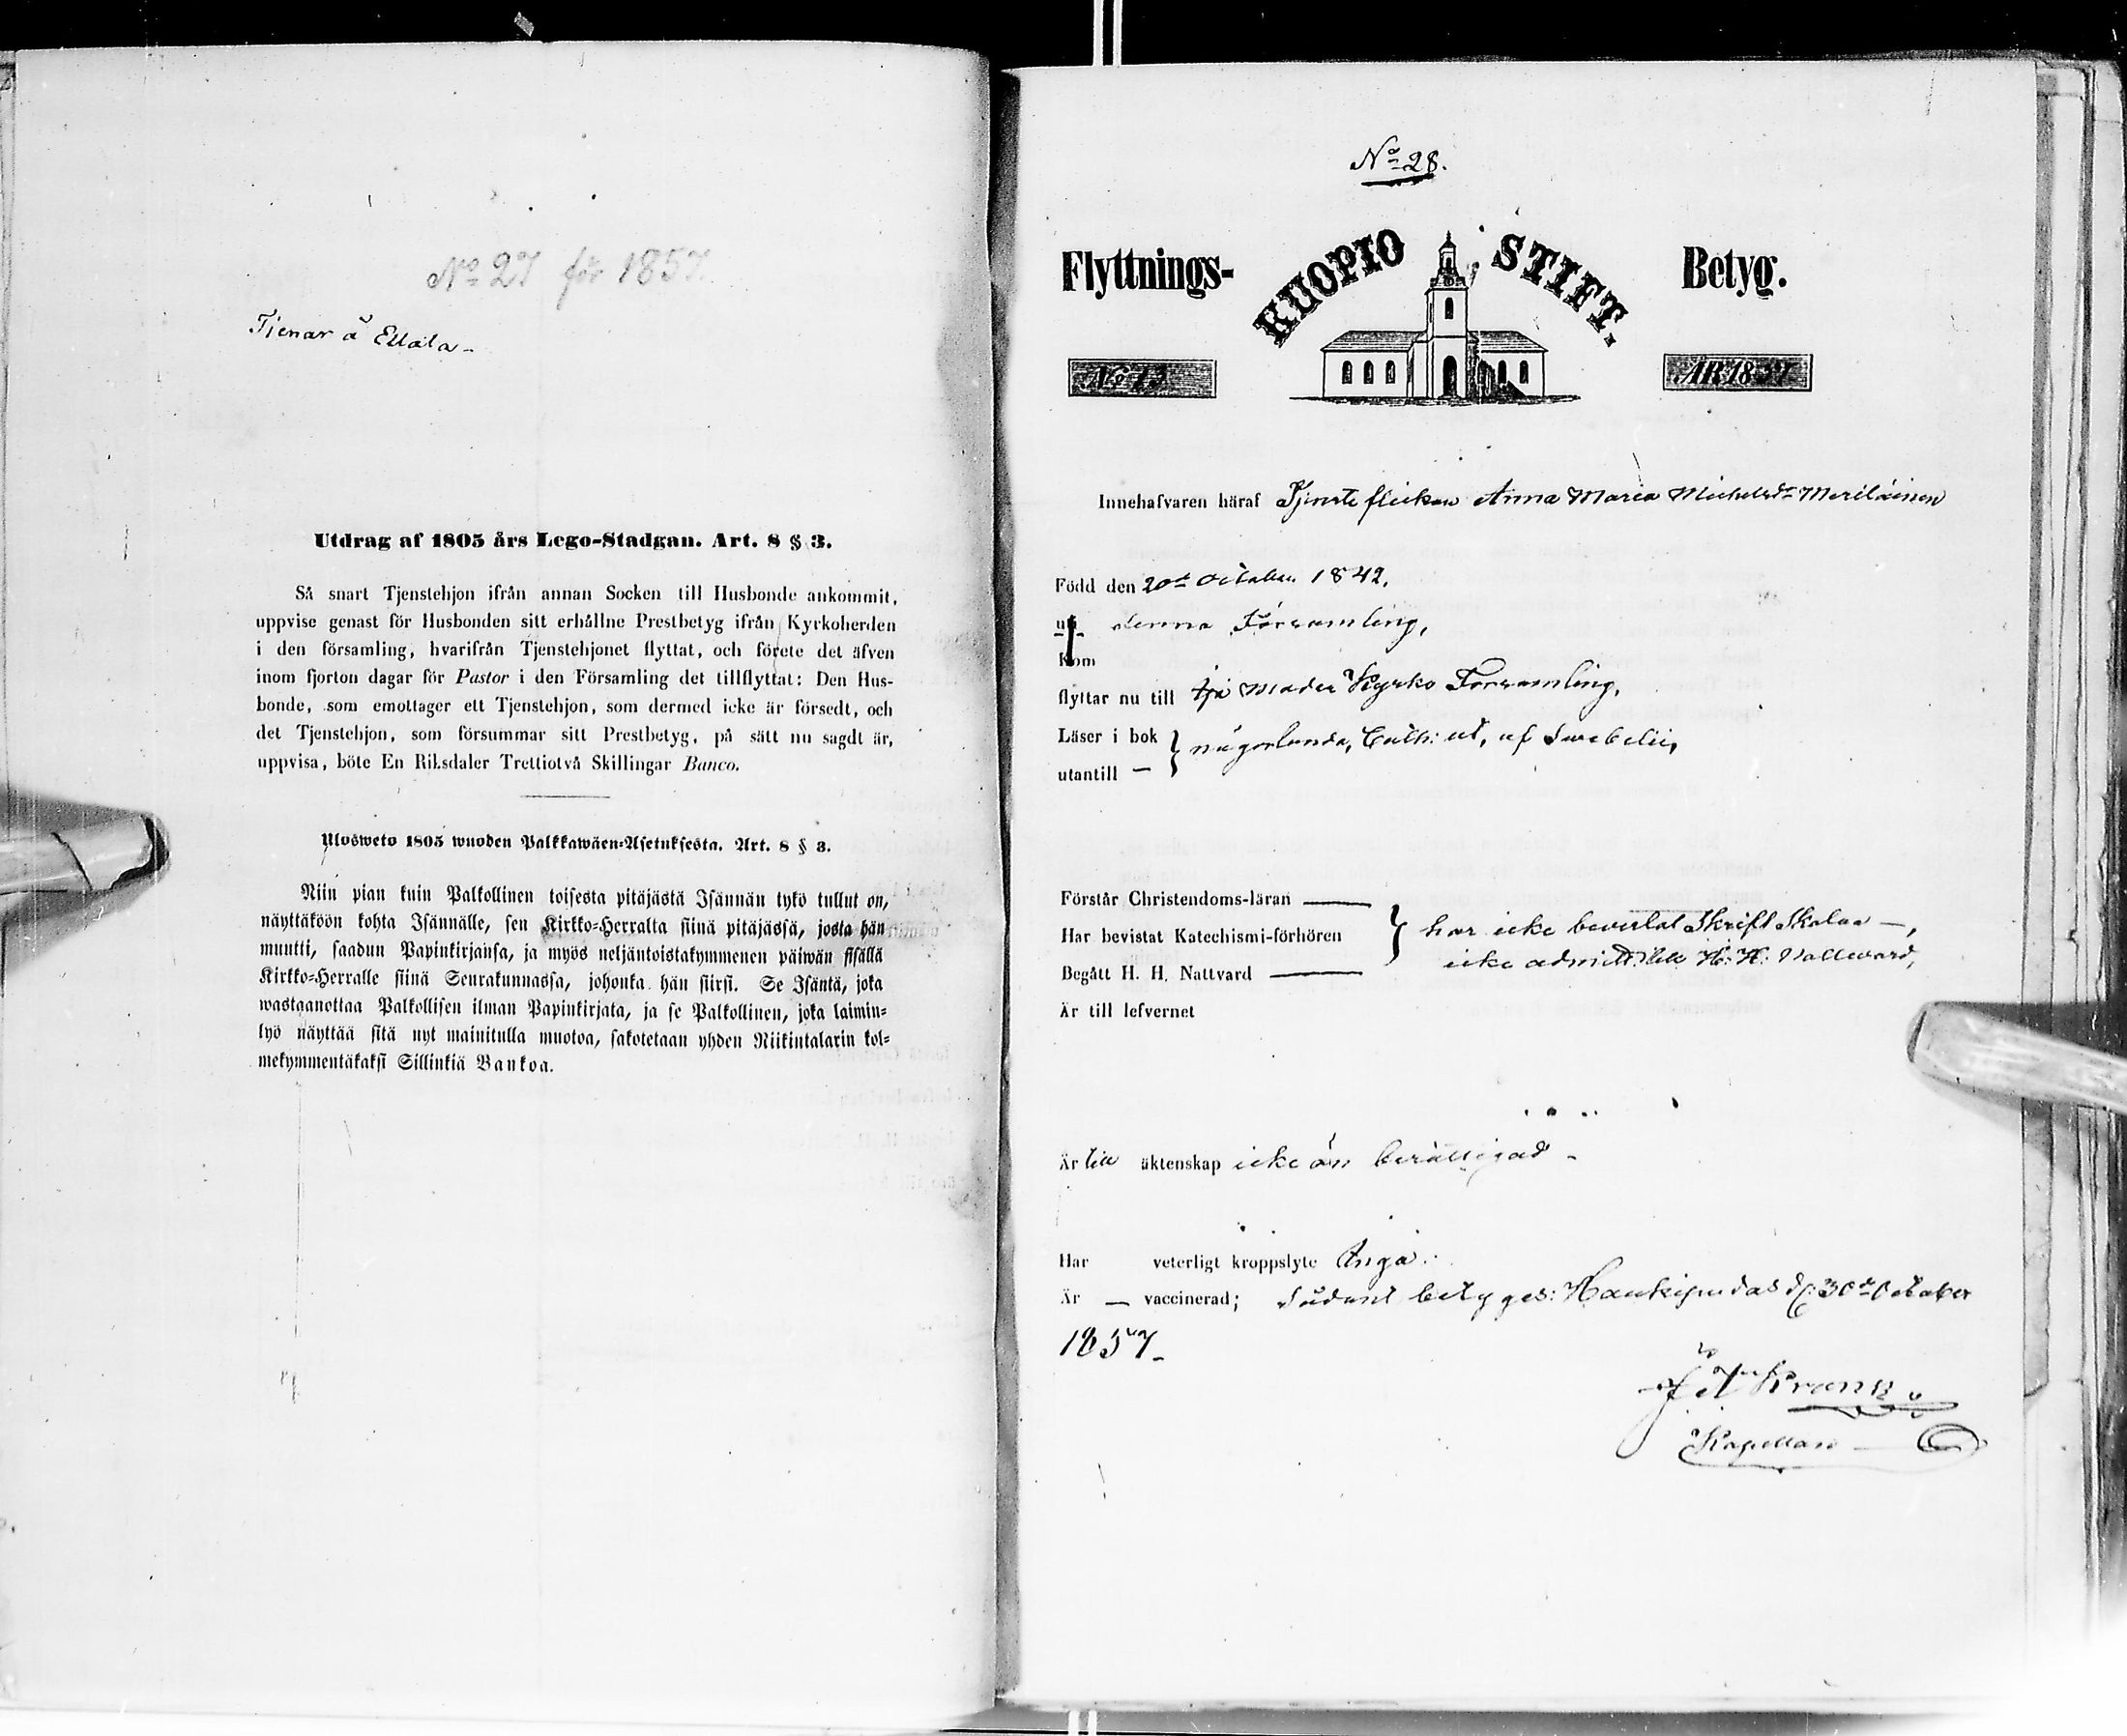 No 27 för 1857.
Tjenar å Ellala -
Utdrag af 1805 års Lego-Stadgan. Art. 8 § 3.
Så snart Tjenstehjon ifrån annan Socken till Husbonde ankommit,
uppvise genast för Husbonden sitt erhållne Prestbetyg ifrån Kyrkoherden
i den församling, hvarifrån Tjenstehjonet flyttat, och förete det äfven
inom fjorton dagar för Pastor i den Församling det tillflyttat: Den Hus-
bonde, som emottager ett Tjenstehjon, som dermed icke är försedt, och
det Tjenstehjon, som försummar sitt Prestbetyg, på sätt nu sagdt är,
uppvisa, böte En Riksdaler Trettiotvå Skillingar Banco.
Ulosweto 1805 wuoden Palkkawäen-Asetuksesta. Art. 8 § 3.
Niin pian kuin Palkollinen toisesta pitäjästä Isännän tykö tullut on,
näyttäköön kohta Isännälle, sen Kirkko-Herralta siinä pitäjässä, josta hän
muutti, saadun Papinkirjansa, ja myös neljäntoistakymmenen päiwän sisällä
Kirkko-Herralle siinä Seurakunnassa, johonka hän siirsi. Se Isäntä, joka
wastaanottaa Palkollisen ilman Papinkirjata, ja se Palkollinen, joka laimin-
lyö näyttää sitä nyt mainitulla muotoa, sakotetaan yhden Riikintalarin kol-
mekymmentäkaksi Sillinkiä Bankoa.
No 28.
Flyttnings- KUOPIO STIFT. Betyg.
No 13 ÅR 1857
Innehafvaren häraf Tjenste flickan Anna Maria Michelsdr Meriläinen
Född den 20de October 1842.
uti denna Församling,
Kom
flyttar nu till Ijo Moder Kyrko Församling,
Läser i bok } någorlunda, Cath: ut, af Swebelii,
utantill —
Förstår Christendoms-läran —
Har bevistat Katechismi-förhören } har icke bevistat Skrift Skolan —,
Begått H. H. Nattvard — icke admitt: till H. H. Nattvard,
Är till lefvernet
Är till äktenskap icke än berättigad -
Har veterligt kroppslyte Inga.
Är — vaccinerad; Sådant betyges: Haukipudas d. 30de October
1857 -
Kranck
Kapellan